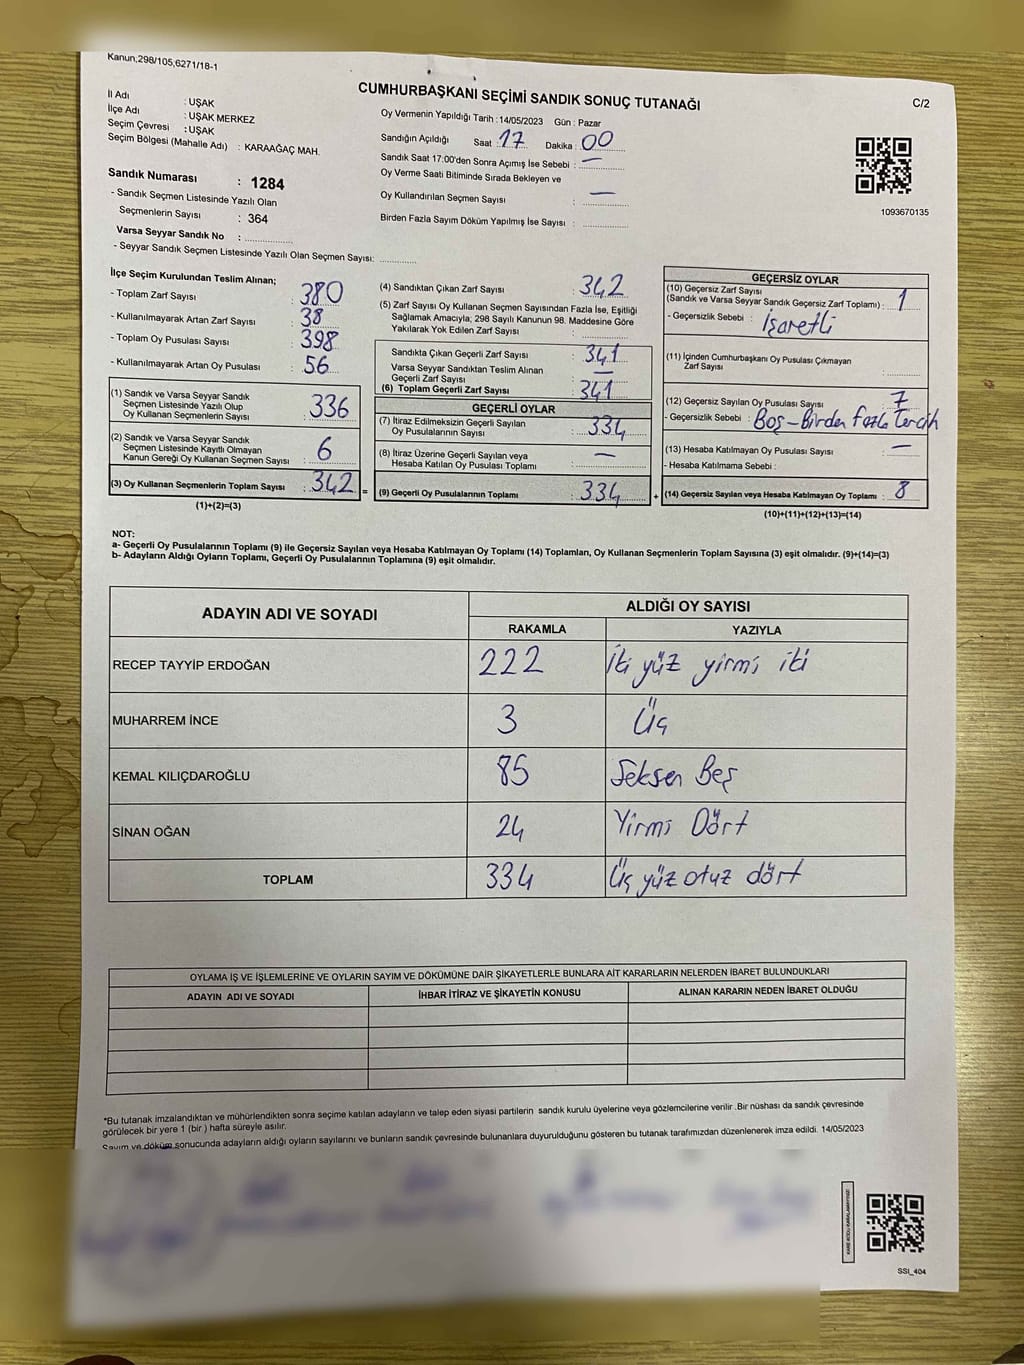 Kanun;298/105,6271/18-1
CUMHURBAŞKANI SEÇİMİ SANDIK SONUÇ TUTANAĞI
C/2
İl Adı : UŞAK
İlçe Adı : UŞAK MERKEZ
Seçim Çevresi : UŞAK
Seçim Bölgesi (Mahalle Adı) : KARAAĞAÇ MAH.
Sandık Numarası : 1284
- Sandık Seçmen Listesinde Yazılı Olan
Seçmenlerin Sayısı : 364
Varsa Seyyar Sandık No :
- Seyyar Sandık Seçmen Listesinde Yazılı Olan Seçmen Sayısı:
Oy Vermenin Yapıldığı Tarih :14/05/2023 Gün : Pazar
Sandığın Açıldığı Saat : 17 Dakika : 00
Sandık Saat 17:00'den Sonra Açımış İse Sebebi : —
Oy Verme Saati Bitiminde Sırada Bekleyen ve
Oy Kullandırılan Seçmen Sayısı : —
Birden Fazla Sayım Döküm Yapılmış İse Sayısı :
1093670135
İlçe Seçim Kurulundan Teslim Alınan;
- Toplam Zarf Sayısı : 380
- Kullanılmayarak Artan Zarf Sayısı : 38
- Toplam Oy Pusulası Sayısı : 398
- Kullanılmayarak Artan Oy Pusulası : 56
(1) Sandık ve Varsa Seyyar Sandık
Seçmen Listesinde Yazılı Olup
Oy Kullanan Seçmenlerin Sayısı : 336
(2) Sandık ve Varsa Seyyar Sandık
Seçmen Listesinde Kayıtlı Olmayan
Kanun Gereği Oy Kullanan Seçmen Sayısı : 6
(3) Oy Kullanan Seçmenlerin Toplam Sayısı : 342 =
(1)+(2)=(3)
(4) Sandıktan Çıkan Zarf Sayısı : 342
(5) Zarf Sayısı Oy Kullanan Seçmen Sayısından Fazla İse, Eşitliği
Sağlamak Amacıyla; 298 Sayılı Kanunun 98. Maddesine Göre
Yakılarak Yok Edilen Zarf Sayısı :
Sandıkta Çıkan Geçerli Zarf Sayısı : 341
Varsa Seyyar Sandıktan Teslim Alınan
Geçerli Zarf Sayısı : —
(6) Toplam Geçerli Zarf Sayısı : 341
GEÇERLİ OYLAR
(7) İtiraz Edilmeksizin Geçerli Sayılan
Oy Pusulalarının Sayısı : 334
(8) İtiraz Üzerine Geçerli Sayılan veya
Hesaba Katılan Oy Pusulası Toplamı : —
(9) Geçerli Oy Pusulalarının Toplamı : 334 +
GEÇERSİZ OYLAR
(10) Geçersiz Zarf Sayısı
(Sandık ve Varsa Seyyar Sandık Geçersiz Zarf Toplamı) : 1
- Geçersizlik Sebebi : İşaretli
(11) İçinden Cumhurbaşkanı Oy Pusulası Çıkmayan
Zarf Sayısı :
(12) Geçersiz Sayılan Oy Pusulası Sayısı : 7
- Geçersizlik Sebebi : Boş-Birden Fazla Tercih
(13) Hesaba Katılmayan Oy Pusulası Sayısı : —
- Hesaba Katılmama Sebebi :
(14) Geçersiz Sayılan veya Hesaba Katılmayan Oy Toplamı : 8
(10)+(11)+(12)+(13)=(14)
NOT:
a- Geçerli Oy Pusulalarının Toplamı (9) ile Geçersiz Sayılan veya Hesaba Katılmayan Oy Toplamı (14) Toplamları, Oy Kullanan Seçmenlerin Toplam Sayısına (3) eşit olmalıdır. (9)+(14)=(3)
b- Adayların Aldığı Oyların Toplamı, Geçerli Oy Pusulalarının Toplamına (9) eşit olmalıdır.
ADAYIN ADI VE SOYADI ALDIĞI OY SAYISI
RAKAMLA YAZIYLA
RECEP TAYYİP ERDOĞAN 222 İki yüz yirmi iki
MUHARREM İNCE 3 Üç
KEMAL KILIÇDAROĞLU 85 Seksen Beş
SİNAN OĞAN 24 Yirmi Dört
TOPLAM 334 Üç yüz otuz dört
OYLAMA İŞ VE İŞLEMLERİNE VE OYLARIN SAYIM VE DÖKÜMÜNE DAİR ŞİKAYETLERLE BUNLARA AİT KARARLARIN NELERDEN İBARET BULUNDUKLARI
ADAYIN ADI VE SOYADI İHBAR İTİRAZ VE ŞİKAYETİN KONUSU ALINAN KARARIN NEDEN İBARET OLDUĞU
*Bu tutanak imzalandıktan ve mühürlendikten sonra seçime katılan adayların ve talep eden siyasi partilerin sandık kurulu üyelerine veya gözlemcilerine verilir .Bir nüshası da sandık çevresinde
görülecek bir yere 1 (bir ) hafta süreyle asılır.
Sayım ve döküm sonucunda adayların aldığı oyların sayılarını ve bunların sandık çevresinde bulunanlara duyurulduğunu gösteren bu tutanak tarafımızdan düzenlenerek imza edildi. 14/05/2023
KARE KODU KARALAMAYINIZ!
SSI_404